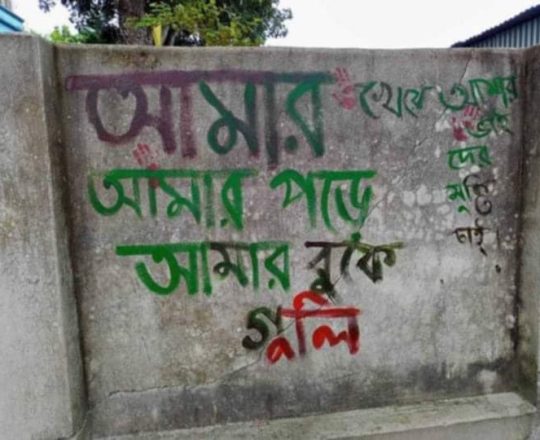 আমার খেয়ে
আমার পড়ে
আমার বুকে
গুলি
আমার
ভাই
দের
মুক্তি
চাই।